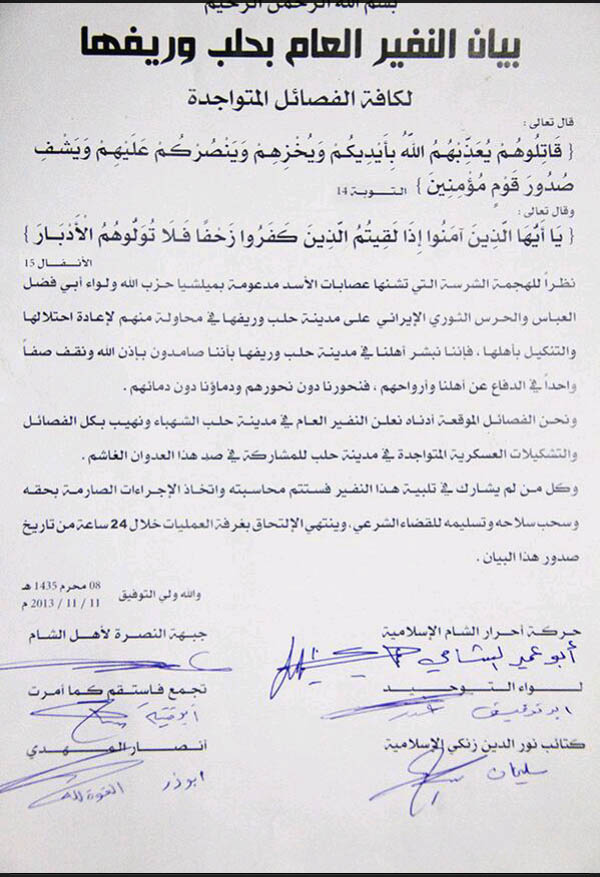 بسم الله الرحمن الرحيم
بيان النفير العام بحلب وريفها
لكافة الفصائل المتواجدة
قال تعالى :
{ قَاتِلُوهُمْ يُعَذِّبْهُمُ اللَّهُ بِأَيْدِيكُمْ وَيُخْزِهِمْ وَيَنْصُرْكُمْ عَلَيْهِمْ وَيَشْفِ
صُدُورَ قَوْمٍ مُؤْمِنِينَ } التوبة 14
وقال تعالى :
{ يَا أَيُّهَا الَّذِينَ آمَنُوا إِذَا لَقِيتُمُ الَّذِينَ كَفَرُوا زَحْفًا فَلَا تُوَلُّوهُمُ الْأَدْبَارَ }
الأنفال 15
نظراً للهجمة الشرسة التي تشنها عصابات الأسد مدعومة بميلشيا حزب الله ولواء أبي فضل
العباس والحرس الثوري الإيراني على مدينة حلب وريفها في محاولة منهم لإعادة احتلالها
والتنكيل بأهلها ، فإننا نبشر أهلنا في مدينة حلب وريفها بأننا صامدون بإذن الله ونقف صفاً
واحداً في الدفاع عن أهلنا وأرواحهم ، فنحورنا دون نحورهم ودماؤنا دون دمائهم .
ونحن الفصائل الموقعة أدناه نعلن النفير العام في مدينة حلب الشهباء ونهيب بكل الفصائل
والتشكيلات العسكرية المتواجدة في مدينة حلب للمشاركة في صد هذا العدوان الغاشم .
وكل من لم يشارك في تلبية هذا النفير فستتم محاسبته واتخاذ الإجراءات الصارمة بحقه
وسحب سلاحه وتسليمه للقضاء الشرعي، وينتهي الإلتحاق بغرفة العمليات خلال 24 ساعة من تاريخ
صدور هذا البيان .
والله ولي التوفيق 08 محرم 1435 هـ
11 / 11 / 2013 م
حركة أحرار الشام الإسلامية جبهة النصرة لأهل الشام
أبو عمير الشامي
لواء التوحيد تجمع فاستقم كما أمرت
ابو توفيق أبو قتيبة
كتائب نور الدين زنكي الإسلامية أنصار المهدي
سليمان ابو ذر القوة لله